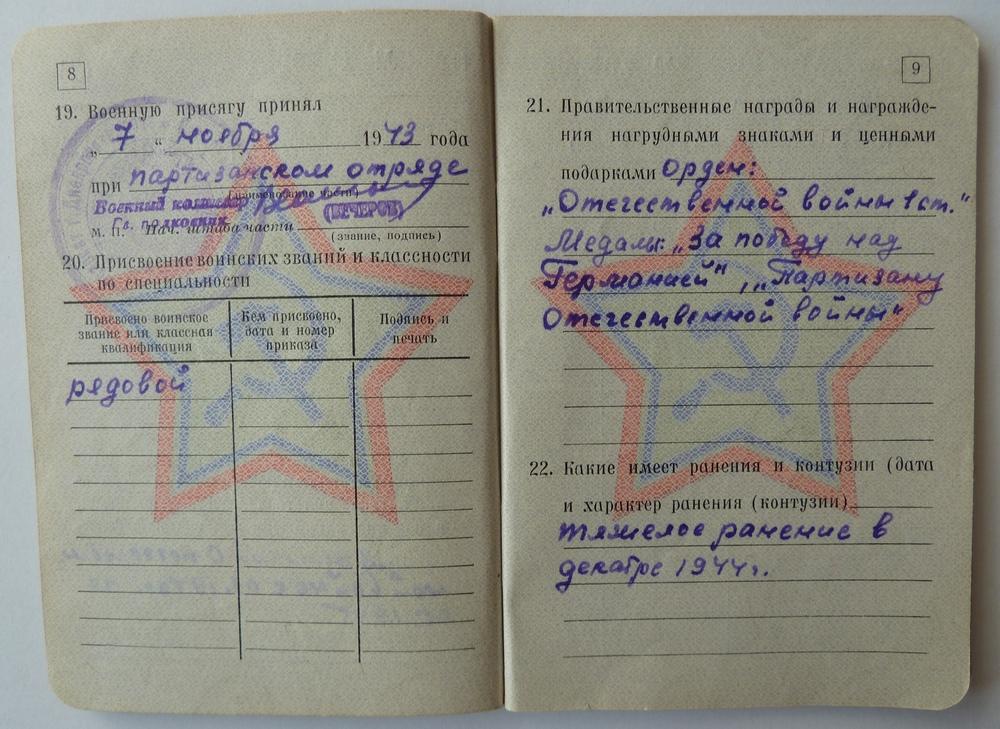 8
19. Военную присягу принял
„ 7 “ ноября 1943 года
при партизанском отряде
(наименование части)
Военный комиссар
Гв. полковник (ВЕЧЕРОВ)
м. п. Нач. штаба части
(звание, подпись)
20. Присвоение воинских званий и классности
по специальности
Присвоено воинское
звание или классная
квалификация
Кем присвоено,
дата и номер
приказа
Подпись и
печать
рядовой
9
21. Правительственные награды и награжде-
ния нагрудными знаками и ценными
подарками Орден:
„Отечественной войны 1 ст."
Медалы: „За победу над
Германией", „Партизану
Отечественной войны"
22. Какие имеет ранения и контузии (дата
и характер ранения (контузии)
тяжелое ранение в
декабре 1944 г.